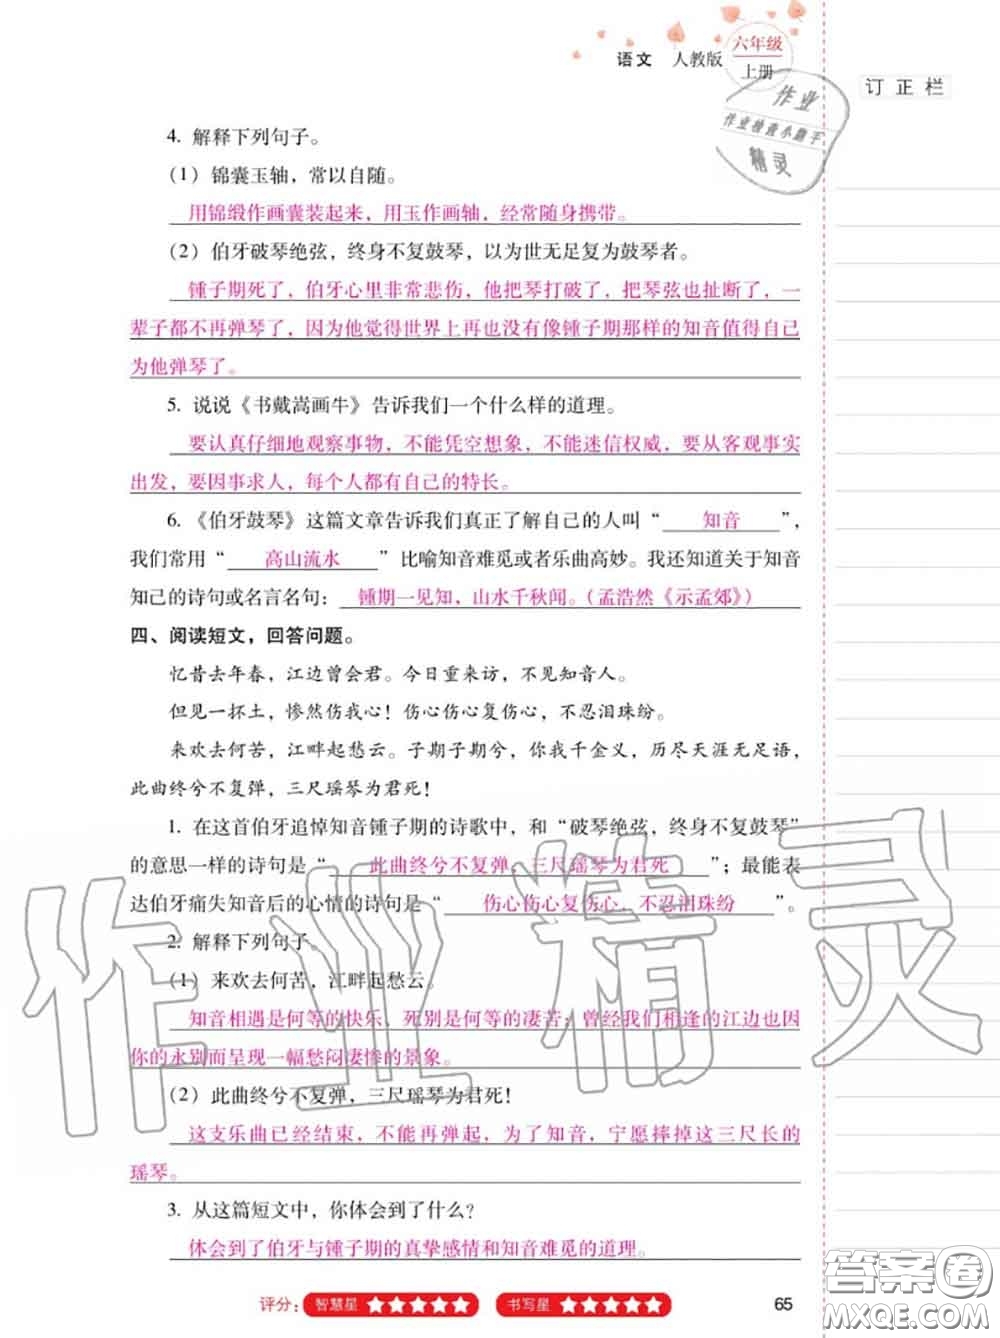 语文 人教版 六年级
上册
订正栏
作业
作业检查小助手
精灵
4. 解释下列句子。
(1) 锦囊玉轴，常以自随。
用锦缎作画囊装起来，用玉作画轴，经常随身携带。
(2) 伯牙破琴绝弦，终身不复鼓琴，以为世无足复为鼓琴者。
锺子期死了，伯牙心里非常悲伤，他把琴打破了，把琴弦也扯断了，一
辈子都不再弹琴了，因为他觉得世界上再也没有像锺子期那样的知音值得自己
为他弹琴了。
5. 说说《书戴嵩画牛》告诉我们一个什么样的道理。
要认真仔细地观察事物，不能凭空想象，不能迷信权威，要从客观事实
出发，要因事求人，每个人都有自己的特长。
6. 《伯牙鼓琴》这篇文章告诉我们真正了解自己的人叫“知音”，
我们常用“高山流水”比喻知音难觅或者乐曲高妙。我还知道关于知音
知己的诗句或名言名句：锺期一见知，山水千秋闻。（孟浩然《示孟郊》）
四、阅读短文，回答问题。
忆昔去年春，江边曾会君。今日重来访，不见知音人。
但见一抔土，惨然伤我心！伤心伤心复伤心，不忍泪珠纷。
来欢去何苦，江畔起愁云。子期子期兮，你我千金义，历尽天涯无足语，
此曲终兮不复弹，三尺瑶琴为君死！
1. 在这首伯牙追悼知音锺子期的诗歌中，和“破琴绝弦，终身不复鼓琴”
的意思一样的诗句是“此曲终兮不复弹，三尺瑶琴为君死”；最能表
达伯牙痛失知音后的心情的诗句是“伤心伤心复伤心，不忍泪珠纷”。
2. 解释下列句子。
(1) 来欢去何苦，江畔起愁云。
知音相遇是何等的快乐，死别是何等的凄苦；曾经我们相逢的江边也因
你的永别而呈现一幅愁闷凄惨的景象。
(2) 此曲终兮不复弹，三尺瑶琴为君死！
这支乐曲已经结束，不能再弹起，为了知音，宁愿摔掉这三尺长的
瑶琴。
3. 从这篇短文中，你体会到了什么？
体会到了伯牙与锺子期的真挚感情和知音难觅的道理。
评分： 智慧星 ★★★★★ 书写星 ★★★★★
65
作业精灵
答案圈
MXQE.COM